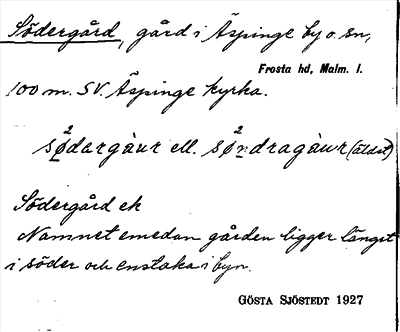 Södergård, gård i Äspinge by o. sn,
Frosta hd, Malm. l.
100 m. SV. Äspinge kyrka.
sø̀dargàur ell. sø̀ndragàur (äldst)
Södergård ek
Namnet emedan gården ligger längst
i söder och enstaka i byn.
GÖSTA SJÖSTEDT 1927